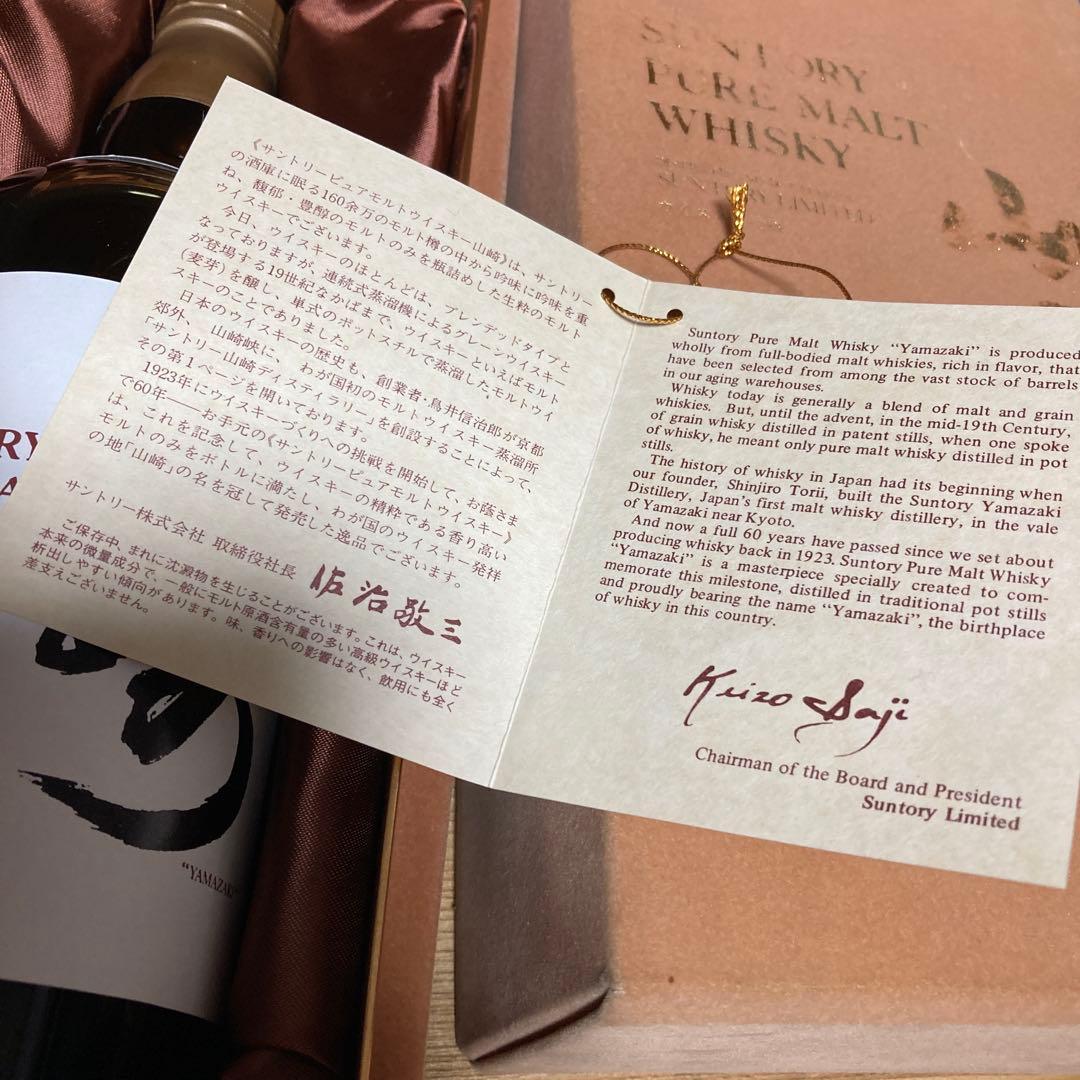 《サントリーピュアモルトウイスキー山崎》は、サントリー
の酒庫に眠る160余万のモルト樽の中から吟味に吟味を重
ね、馥郁・豊醇のモルトのみを瓶詰めした生粋のモルト
ウイスキーでございます。
今日、ウイスキーのほとんどは、ブレンデッドタイプと
なっておりますが、連続式蒸溜機によるグレーンウイスキー
が登場する19世紀なかばまで、ウイスキーといえばモルト
(麦芽)を醸し、単式のポットスチルで蒸溜したモルトウイ
スキーのことでありました。
日本のウイスキーの歴史も、創業者・鳥井信治郎が京都
郊外、山崎峡に、わが国初のモルトウイスキー蒸溜所
「サントリー山崎ディスティラリー」を創設することによって、
その第1ページを開いております。
1923年にウイスキーづくりへの挑戦を開始して、お蔭さま
で60年——お手元の《サントリーピュアモルトウイスキー》
は、これを記念して、ウイスキーの精粋である香り高い
モルトのみをボトルに満たし、わが国のウイスキー発祥
の地「山崎」の名を冠して発売した逸品でございます。
サントリー株式会社 取締役社長 佐治敬三
ご保存中、まれに沈澱物を生じることがございます。これは、ウイスキー
本来の微量成分で、一般にモルト原酒含有量の多い高級ウイスキーほど
析出しやすい傾向があります。味、香りへの影響はなく、飲用にも全く
差支えございません。
Suntory Pure Malt Whisky “Yamazaki” is produced
wholly from full-bodied malt whiskies, rich in flavor, that
have been selected from among the vast stock of barrels
in our aging warehouses.
Whisky today is generally a blend of malt and grain
whiskies. But, until the advent, in the mid-19th Century,
of grain whisky distilled in patent stills, when one spoke
of whisky, he meant only pure malt whisky distilled in pot
stills.
The history of whisky in Japan had its beginning when
our founder, Shinjiro Torii, built the Suntory Yamazaki
Distillery, Japan's first malt whisky distillery, in the vale
of Yamazaki near Kyoto.
And now a full 60 years have passed since we set about
producing whisky back in 1923. Suntory Pure Malt Whisky
“Yamazaki” is a masterpiece specially created to com-
memorate this milestone, distilled in traditional pot stills
and proudly bearing the name “Yamazaki”, the birthplace
of whisky in this country.
Keizo Saji
Chairman of the Board and President
Suntory Limited
SUNTORY
PURE MALT
WHISKY
SUNTORY LIMITED
RY
“YAMAZAKI”